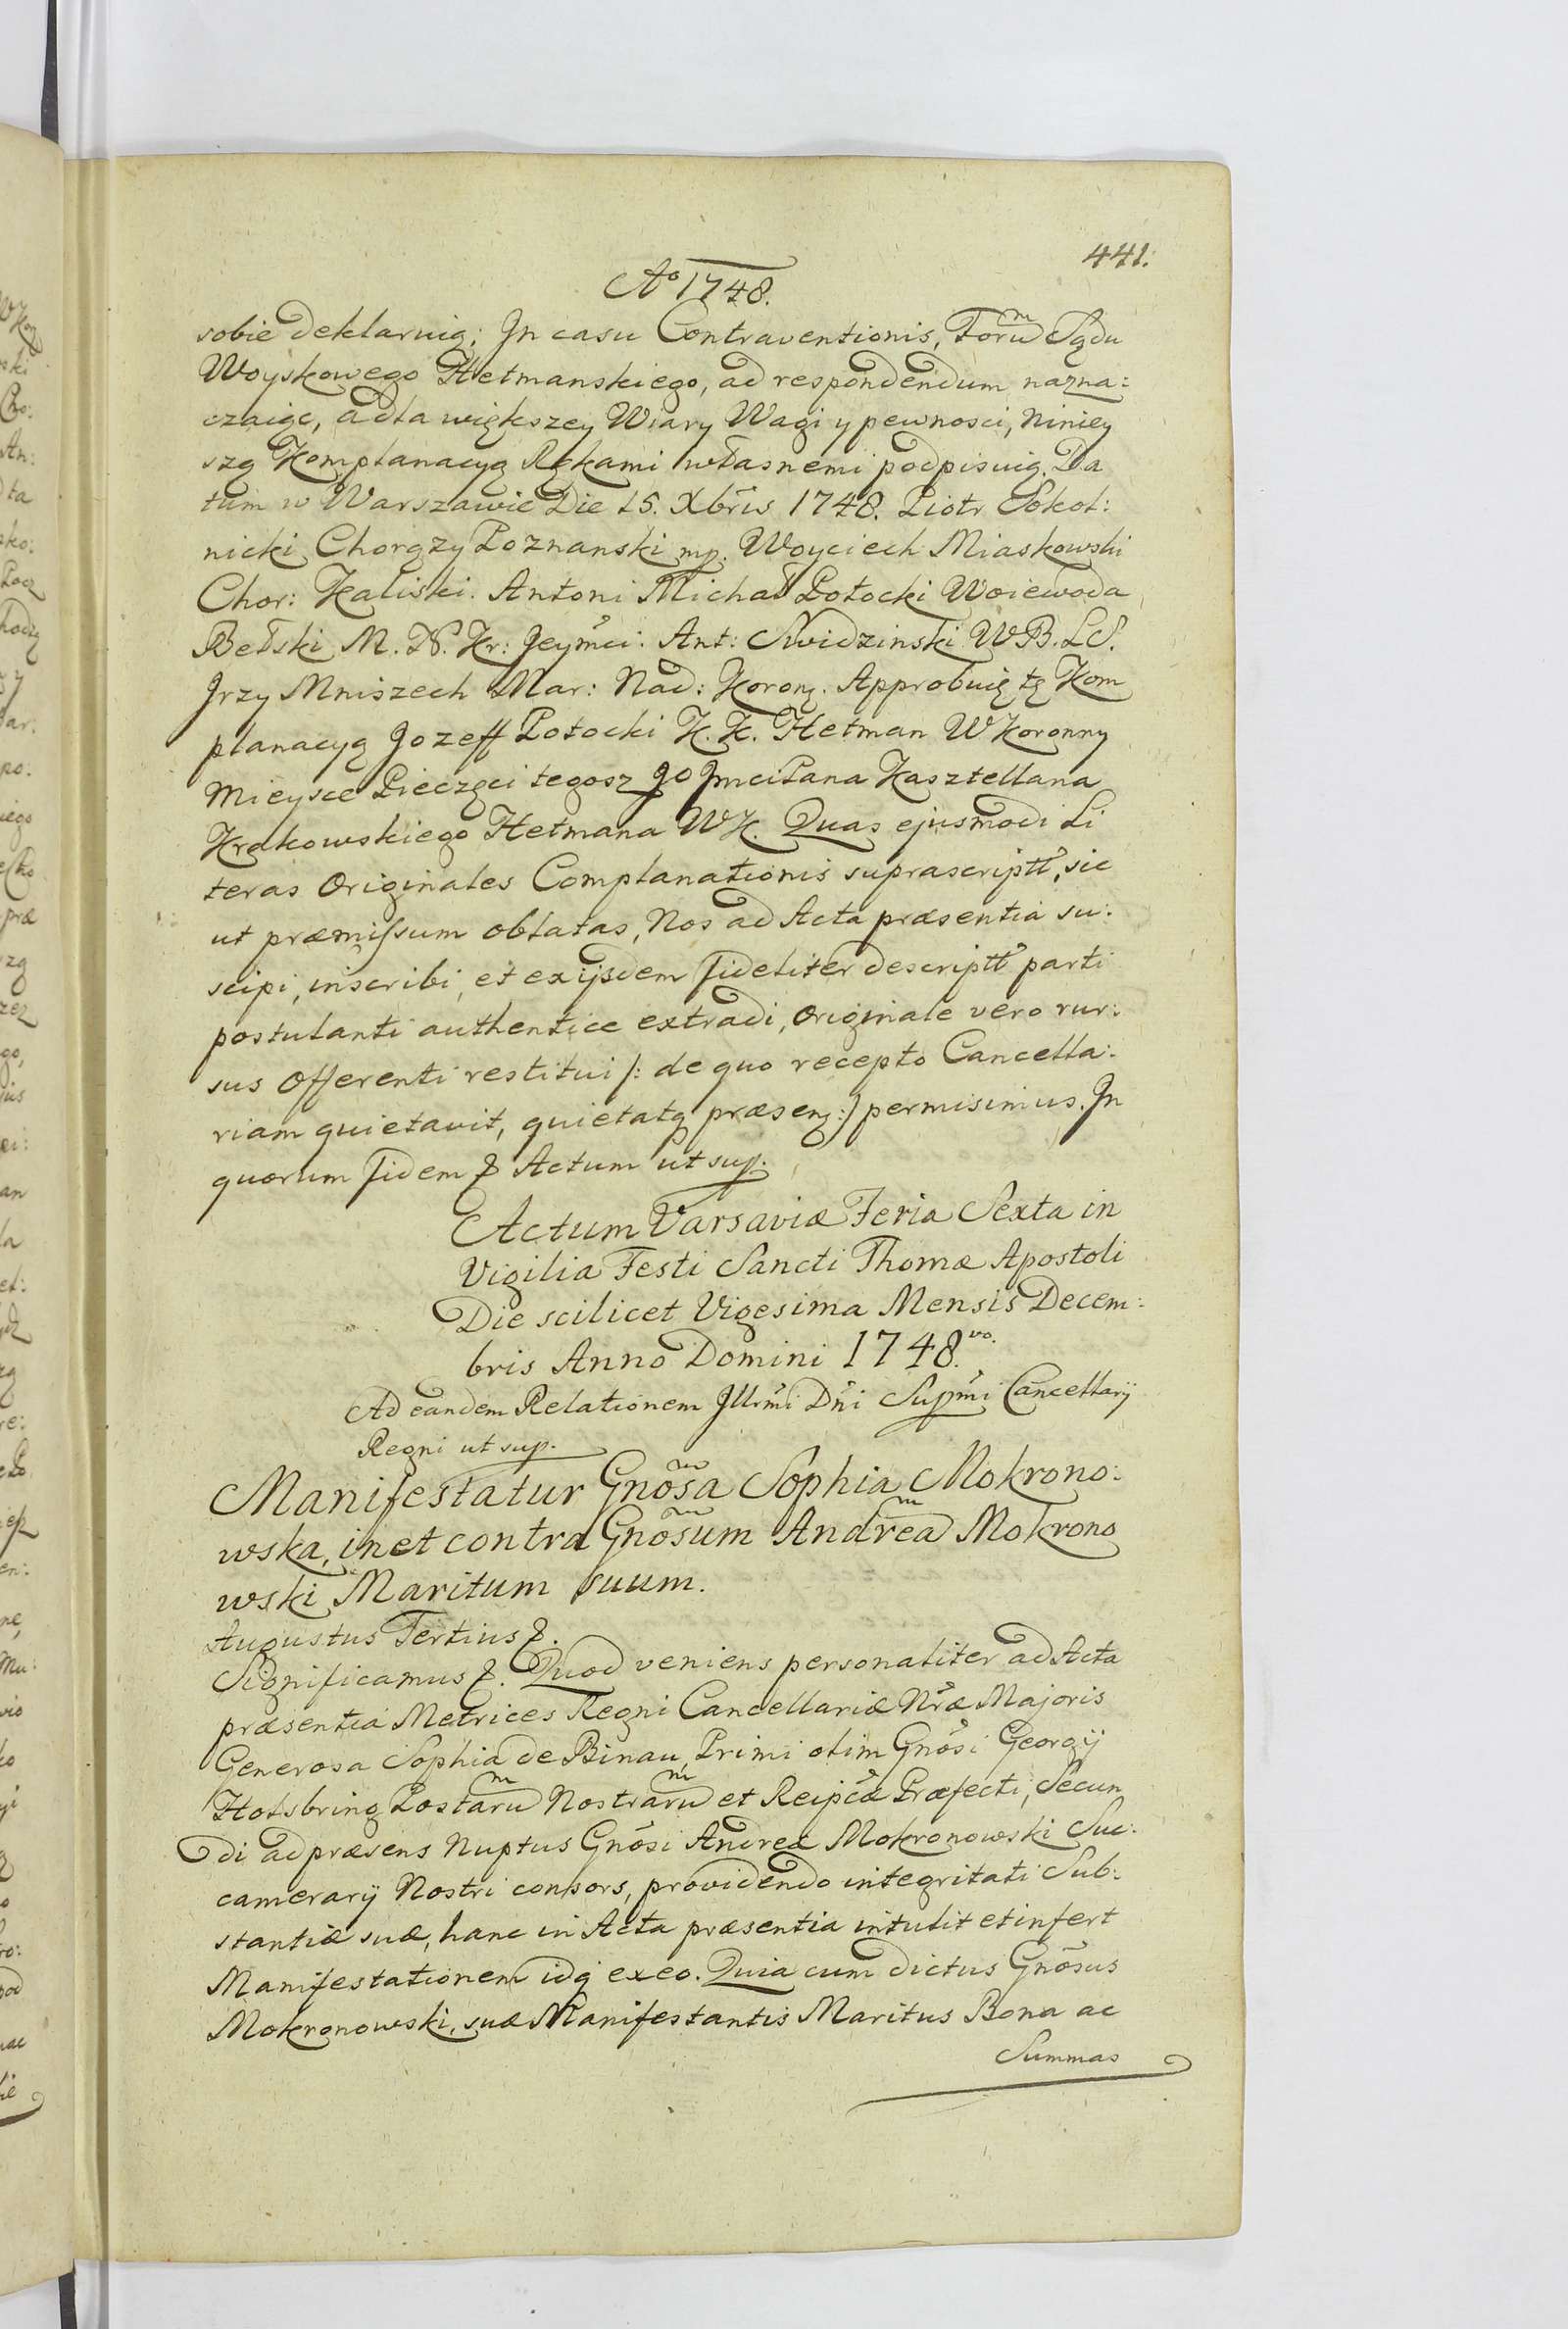 441.
Aº 1748.
sobie deklaruią; In casu Contraventionis, Forū Sądu
Woyskowego Hetmanskiego, ad respondendum nazna:
czaiąc, a dla większey Wiary Wagi y pewnosci, niniey
szą Komplanacyą Rękami własnemi podpisuią. Da
tum w Warszawie Die 15. Xbris 1748. Piotr Sokol:
nicki Chorązy Poznanski mp. Woyciech Miaskowski
Chor: Kaliski. Antoni Michał Potocki Woiewoda
Bełski M. N. Kr: Jeymci. Ant: Swidzinski WB. LS.
Jrzy Mniszech Mar: Nad: Koron. Approbuię tę Kom
planacyą Jozeff Potocki K. K. Hetman WKoronny
Mieysce Pieczęci tegosz Jo JmciPana Kasztellana
Krakowskiego Hetmana WK. Quas ejusmodi Li
teras Originales Complanationis suprascriptt, sic
ut præmissum oblatas, Nos ad Acta præsentia su:
scipi, inscribi, et ex ijsdem fideliter descriptt parti
postulanti authentice extradi, originale vero rur:
sus Offerenti restitui /: de quo recepto Cancella:
riam quietavit, quietatq præsen :/ permisimus. In
quorum fidem & Actum ut sup.
Actum Varsaviæ Feria Sexta in
Vigilia Festi Sancti Thomæ Apostoli
Die scilicet Vigesima Mensis Decem:
bris Anno Domini 1748.vo.
Ad eandem Relationem Jllrmi Dñi Supmi Cancellarij
Regni ut sup.
Manifestatur Gnõsa Sophia Mokrono:
wska, in et contra Gnõsum Andrea Mokrono
wski Maritum suum.
Augustus Tertius &.
Significamus &. Quod veniens personaliter ad Acta
præsentia Metrices Regni Cancellariæ Nræ Majoris
Generosa Sophia de Binau Primi olim Gnõsi Georgij
Holsbring Postarū Nostrarū et Reipcæ Præfecti, Secun
di ad præsens Nuptus Gnõsi Andreæ Mokronowski Suc:
camerarij Nostri consors, providendo integritati Sub:
stantiæ suæ, hanc in Acta præsentia intulit et infert
Manifestationem idq ex eo. Quia cum dictus Gnõsus
Mokronowski, suæ Manifestantis Maritus Bona ac
Summas